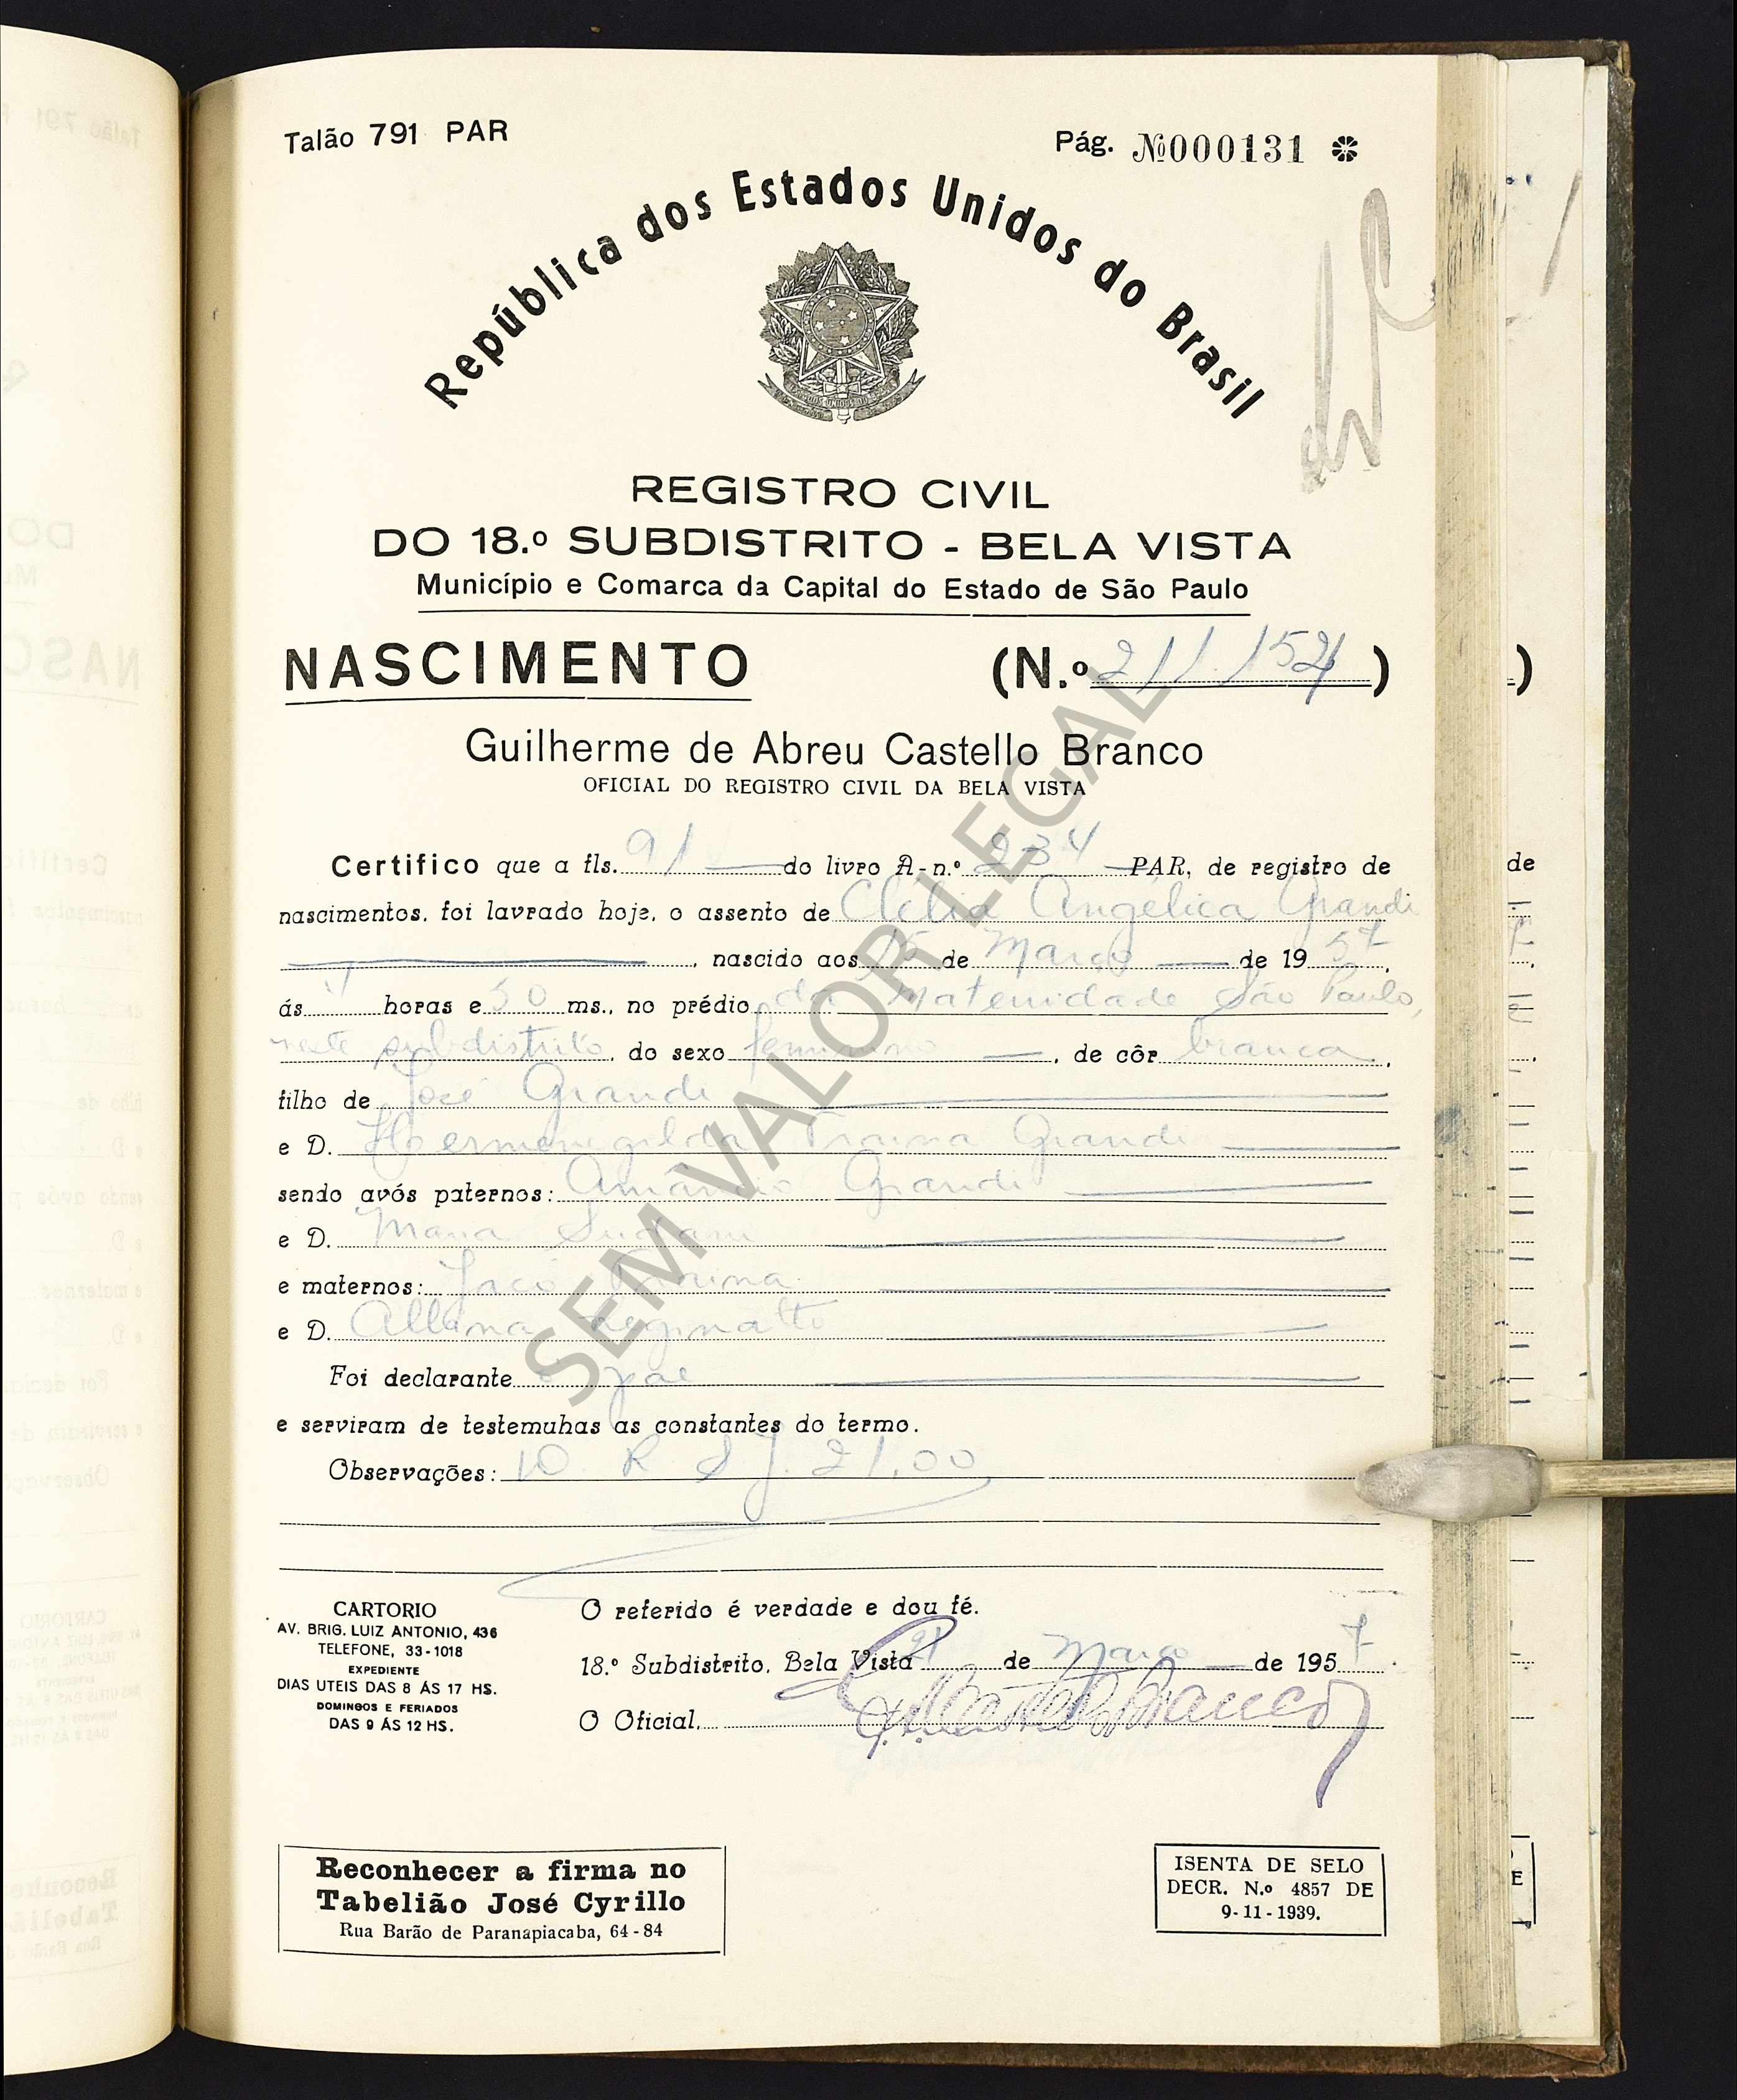 Talão 791 PAR
Pág. №000131
República dos Estados Unidos do Brasil
REGISTRO CIVIL
DO 18.º SUBDISTRITO - BELA VISTA
Município e Comarca da Capital do Estado de São Paulo
NASCIMENTO (N.º 211.154)
Guilherme de Abreu Castello Branco
OFICIAL DO REGISTRO CIVIL DA BELA VISTA
Certifico que a fls. 91 do livro A-n.º 234 PAR, de registro de
nascimentos, foi lavrado hoje, o assento de Clelia Angélica Grandi
, nascido aos 15 de Março de 1957,
ás horas e 30 ms., no prédio da Maternidade São Paulo,
neste subdistrito, do sexo feminino, de côr branca,
filho de José Grandi
e D. Hermenegilda Traina Grandi
sendo avós paternos: Amancio Grandi
e D. Maria
e maternos: Jacó
e D. Reginatto
Foi declarante o pae
e serviram de testemuhas as constantes do termo.
Observações: D. R. S J. 21,00
CARTORIO
AV. BRIG. LUIZ ANTONIO, 436
TELEFONE, 33-1018
EXPEDIENTE
DIAS UTEIS DAS 8 ÁS 17 HS.
DOMINGOS E FERIADOS
DAS 9 ÁS 12 HS.
O referido é verdade e dou fé.
18.º Subdistrito, Bela Vista 21 de Março de 1957.
O Oficial, Castello Branco
Reconhecer a firma no
Tabelião José Cyrillo
Rua Barão de Paranapiacaba, 64-84
ISENTA DE SELO
DECR. N.º 4857 DE
9-11-1939.
SEM VALOR LEGAL